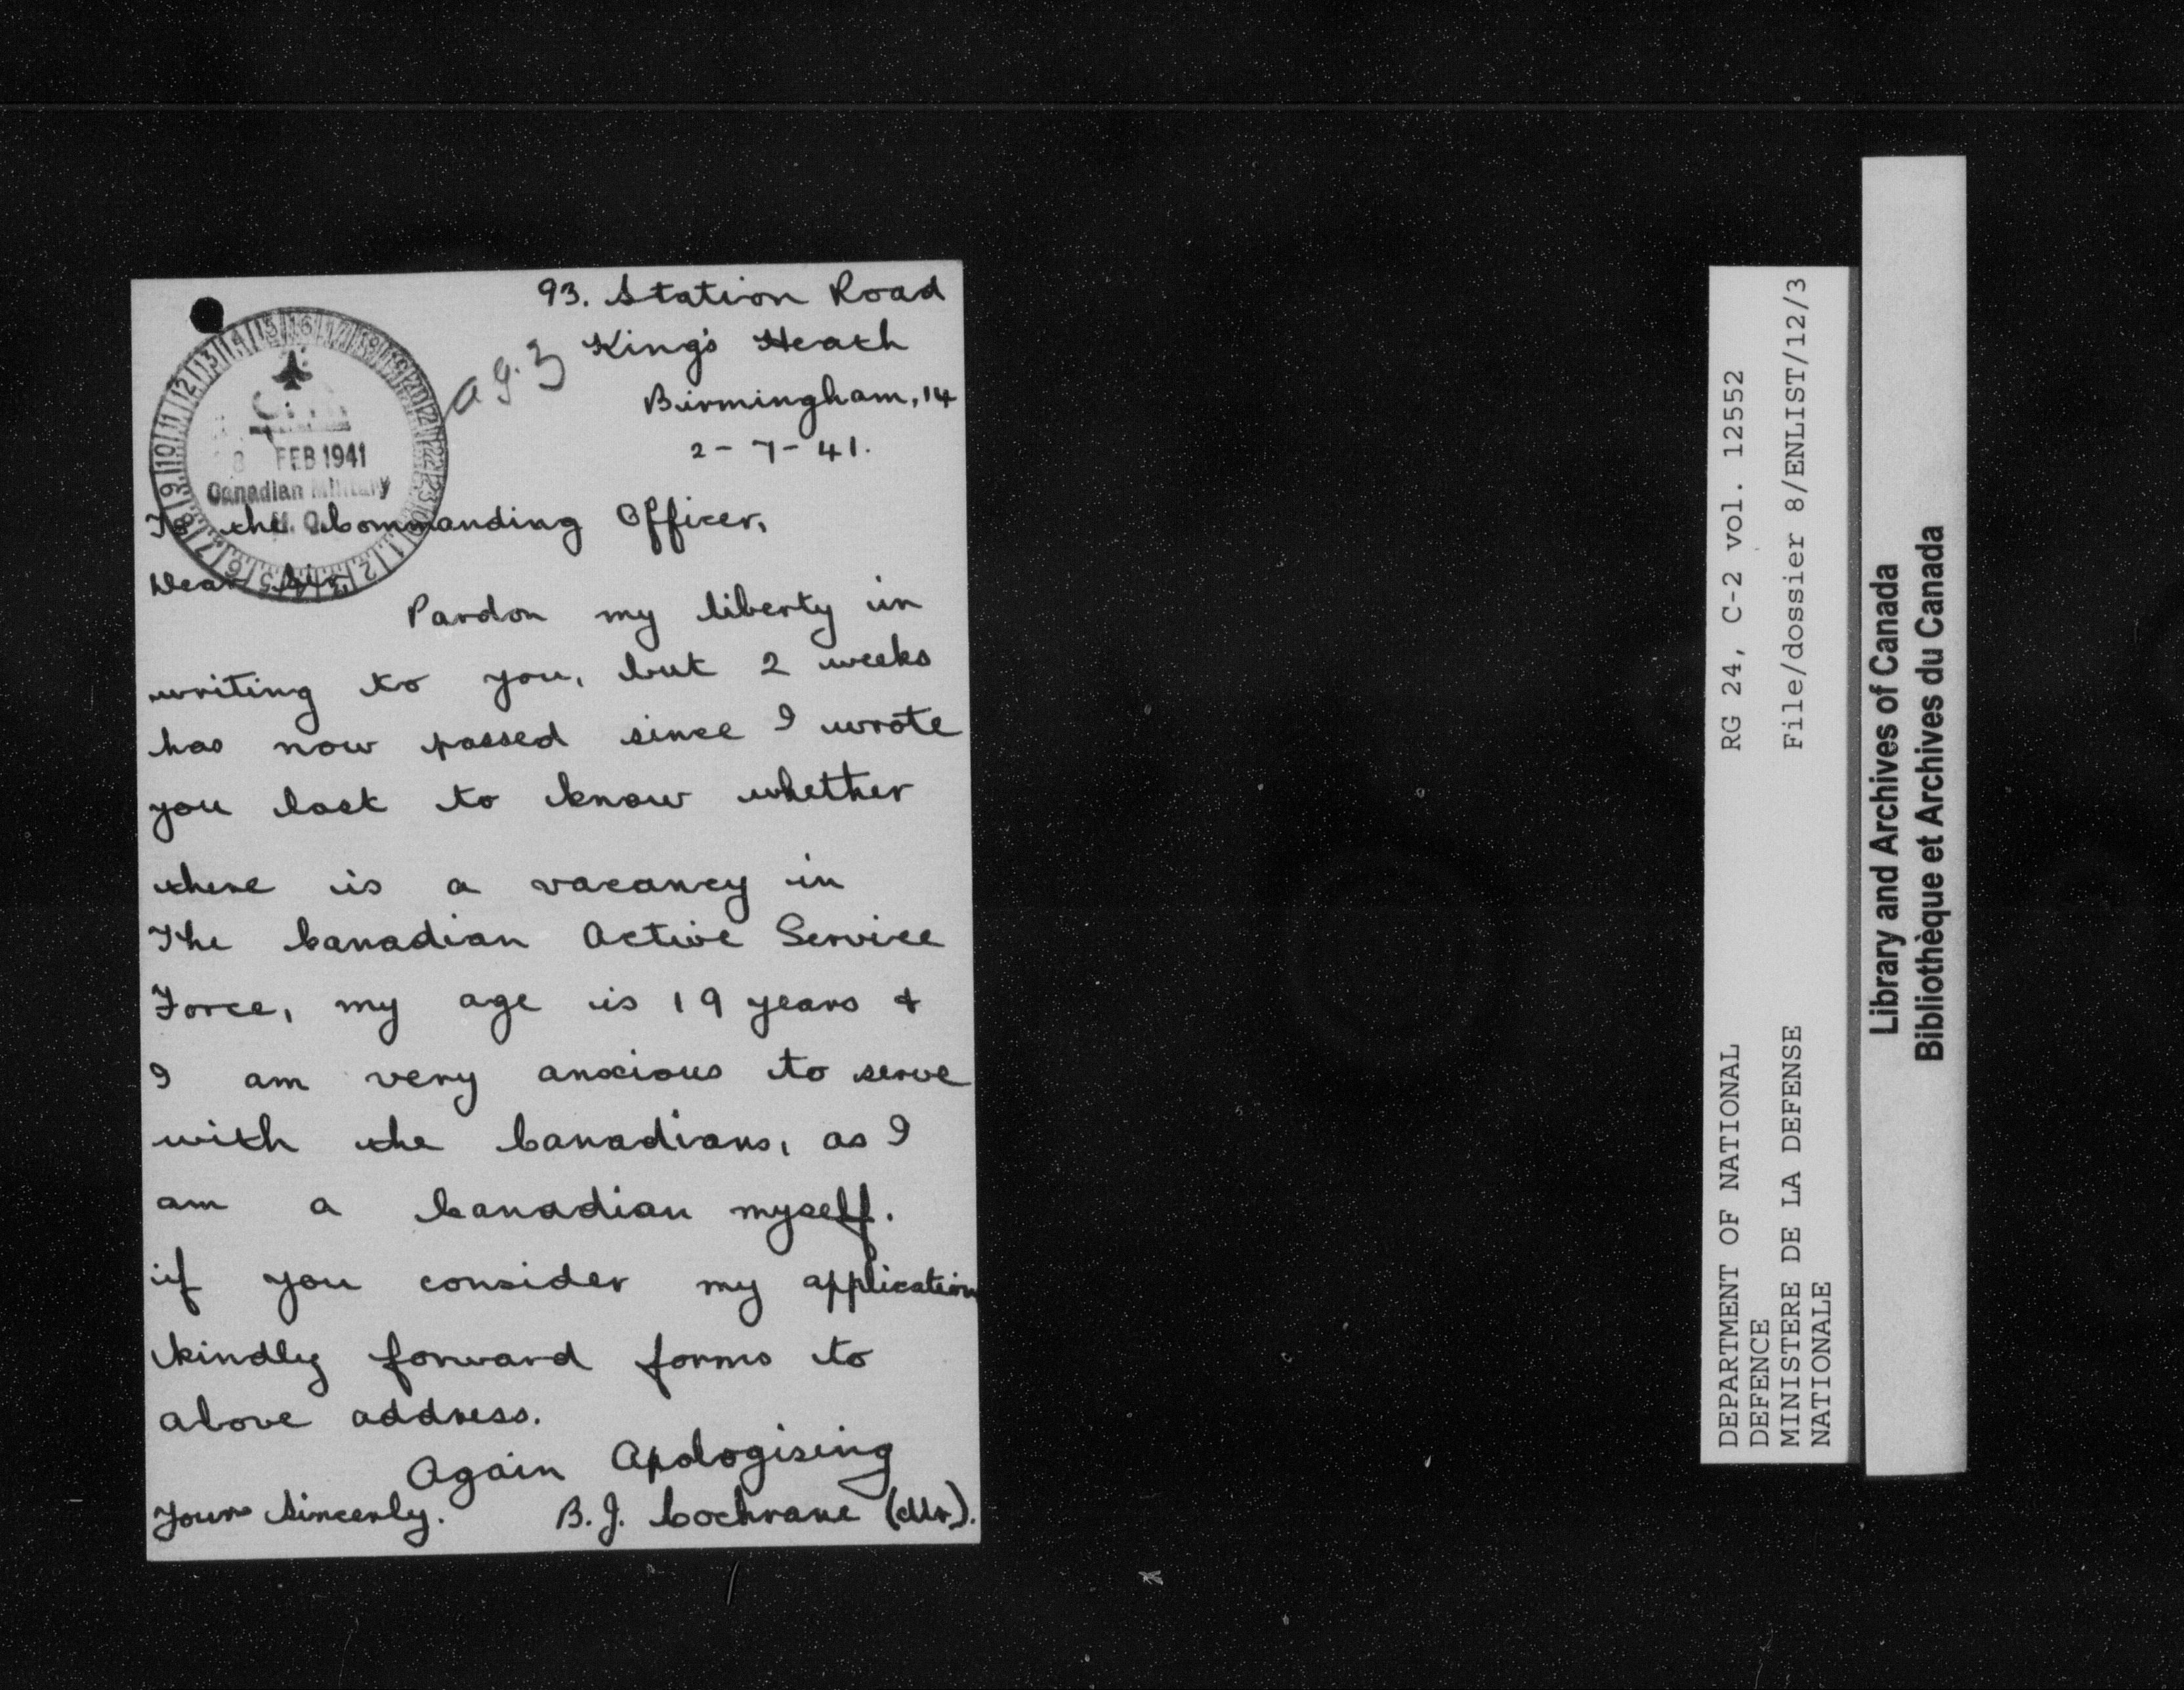 93. Station Road
King's Heath
Birmingham, 14
2-7-41.
ag. 3
8 FEB 1941
Canadian Military
H. Q.
To the Commanding Officer,
Dear Sir,
Pardon my liberty in
writing to you, but 2 weeks
has now passed since I wrote
you last to know whether
there is a vacancy in
The Canadian Active Service
Force, my age is 19 years &
I am very anxious to serve
with the Canadians, as I
am a Canadian myself.
if you consider my application
kindly forward forms to
above address.
Again Apologising
Yours Sincerly. B. J. Cochrane (Mr.).
DEPARTMENT OF NATIONAL
DEFENCE
MINISTERE DE LA DEFENSE
NATIONALE
RG 24, C-2 vol. 12552
File/dossier 8/ENLIST/12/3
Library and Archives of Canada
Bibliothèque et Archives du Canada